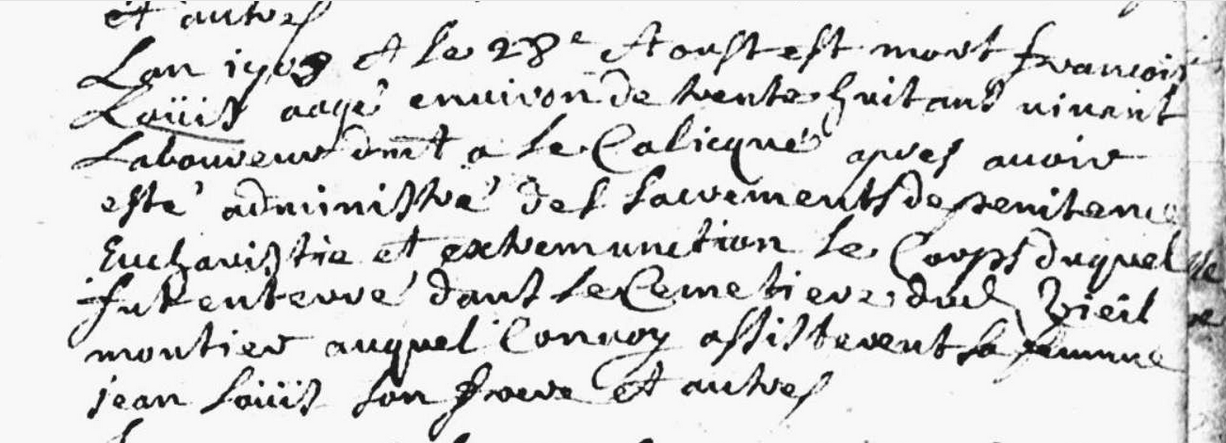 et autres
Lan 1703 et le 28e Aoust est mort francois
Loüis aagé environ de trente huit ans vivant
Laboureur dmt a le Calicque apres avoir
esté administré des sacrements de penitence
Eucharistie et extremunction le Corps duquel
fut enterré dans le Cemetiere dud Vieil
moutier auquel Convoy assisterent sa femme
jean Loüis son frere et autres